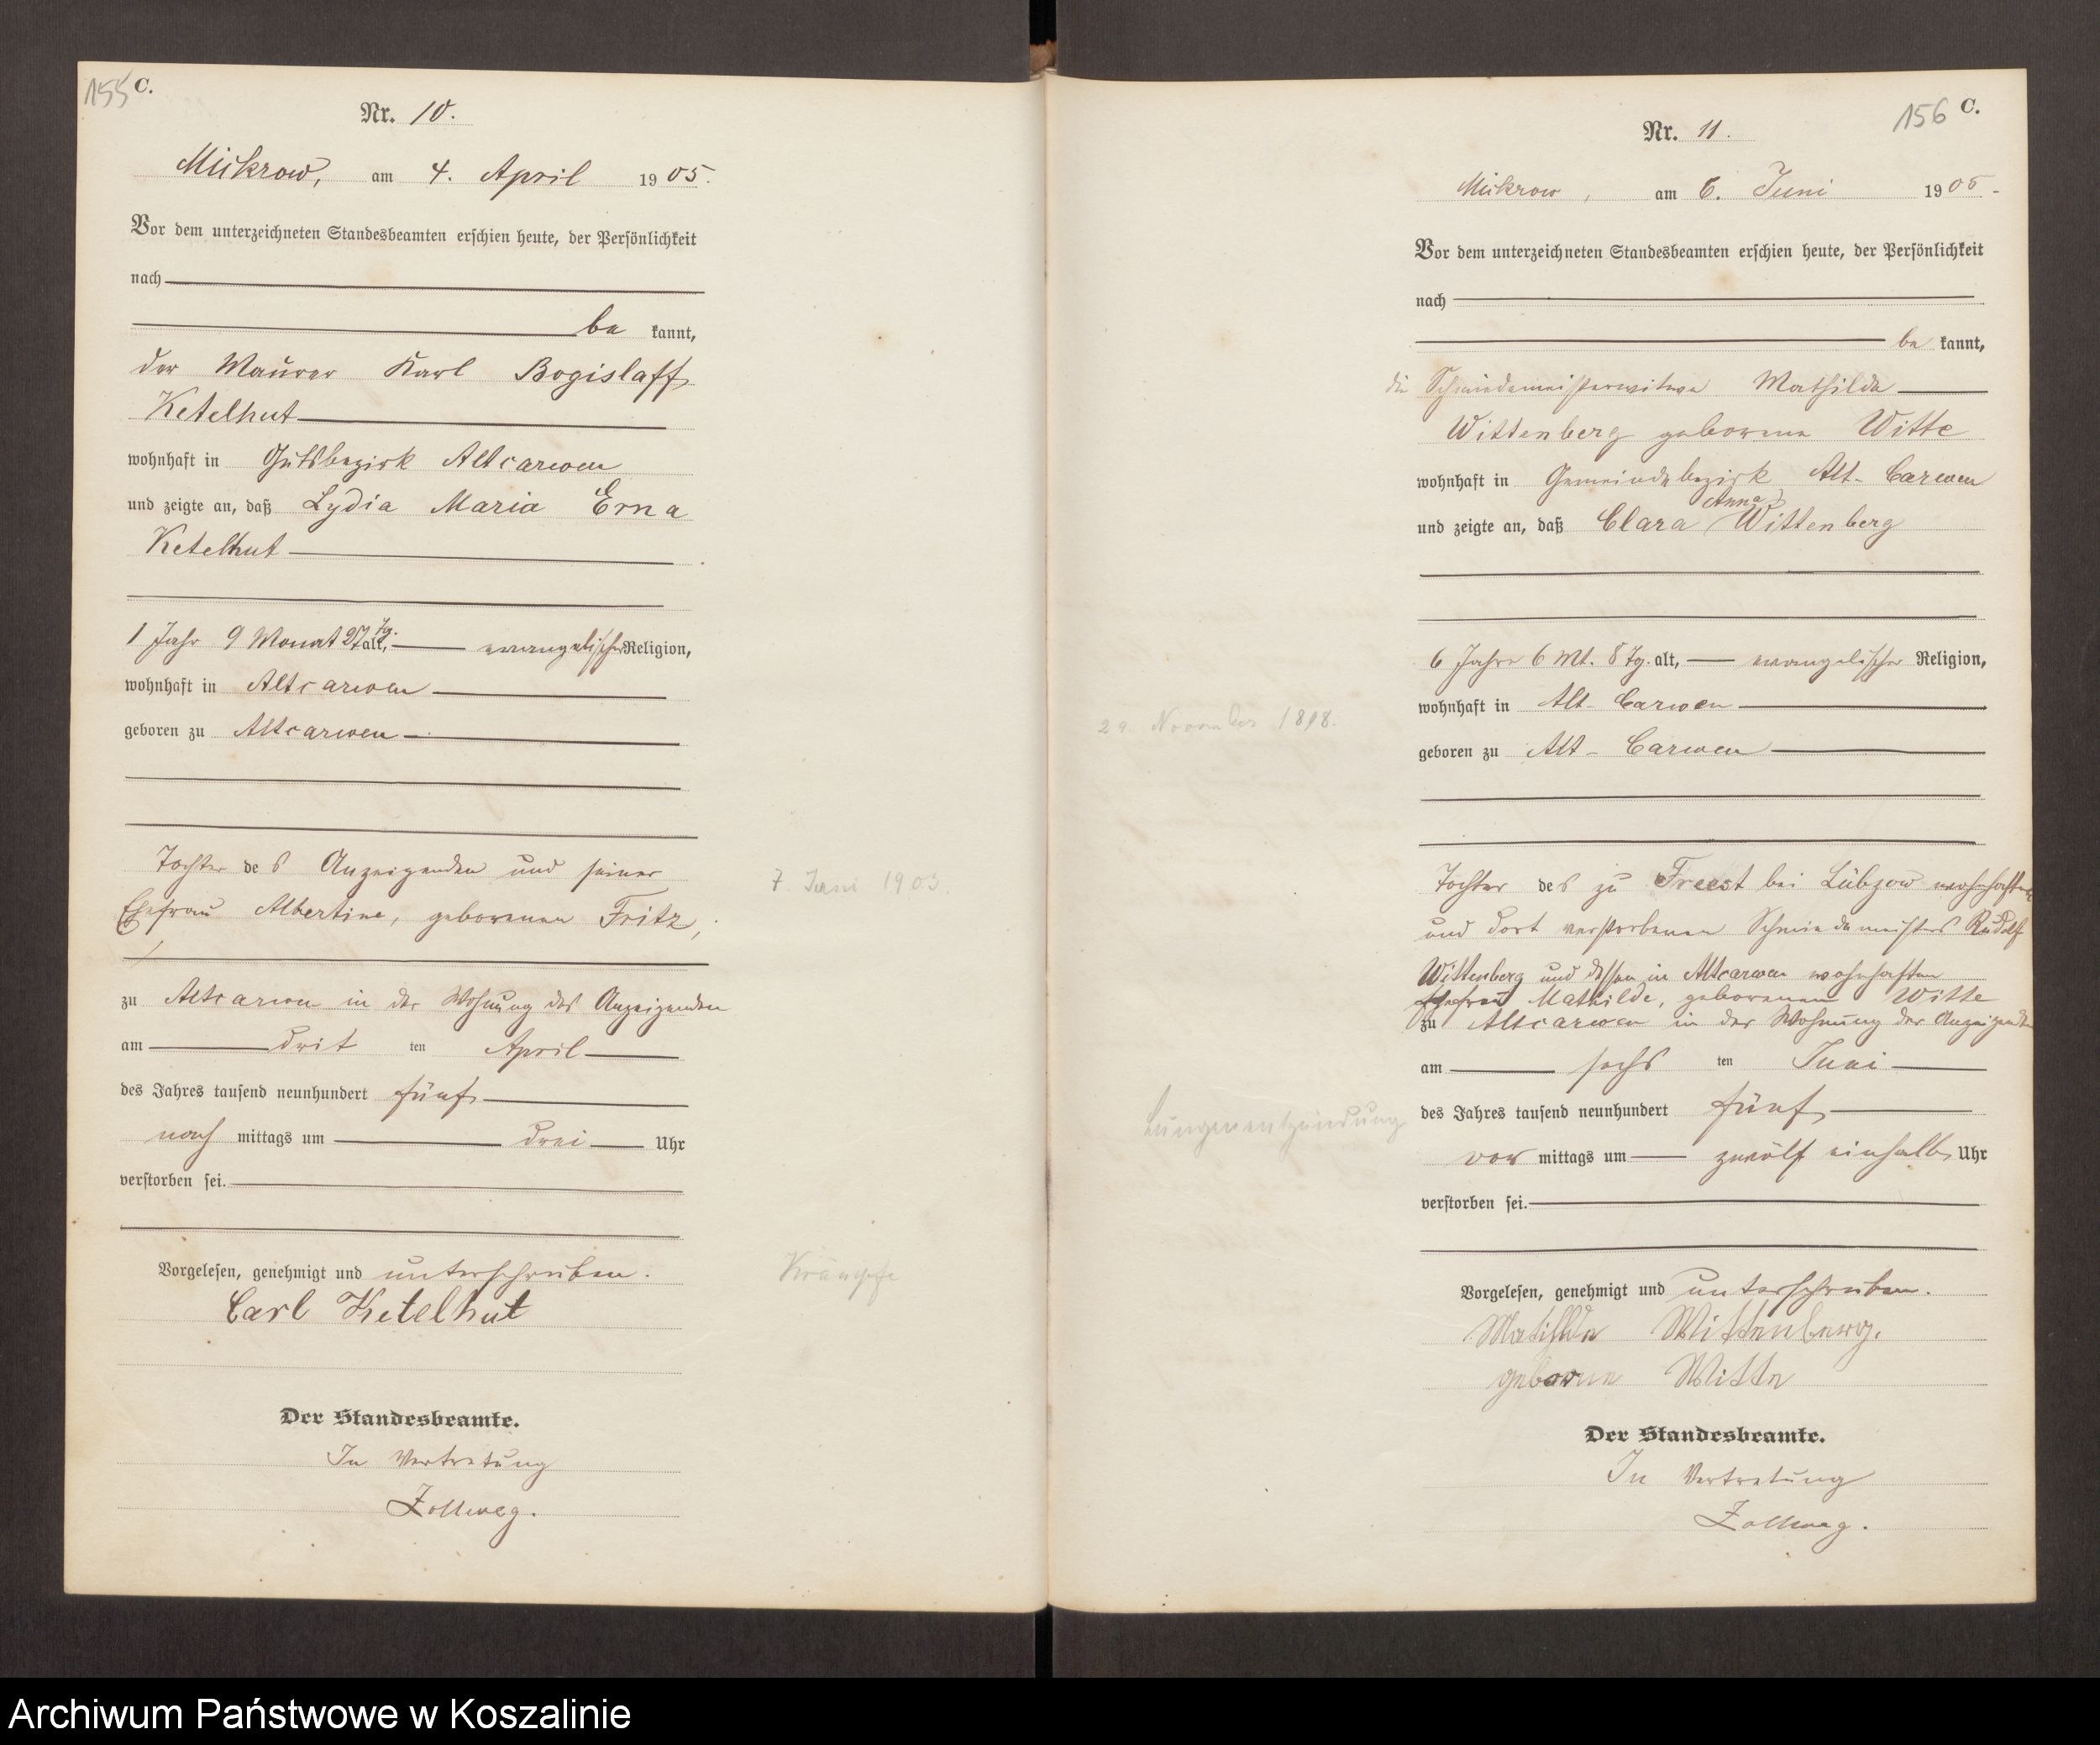 155 C.
Nr. 10.
Mickrow, am 4. April 1905.
Vor dem unterzeichneten Standesbeamten erschien heute, der Persönlichkeit
nach
be kannt,
der Maurer Karl Bogislaff
Ketelhut
wohnhaft in Gutsbezirk Altcarwen
und zeigte an, daß Lydia Maria Erna
Ketelhut
1 Jahr 9 Monat 27 Tg. alt, evangelischer Religion,
wohnhaft in Altcarwen
geboren zu Altcarwen
Tochter des Anzeigenden und seiner
7 Juni 1903.
Ehefrau Albertine, geborenen Fritz,
zu Altcarwen in der Wohnung des Anzeigenden
am dritten April
des Jahres tausend neunhundert fünf
nach mittags um drei Uhr
verstorben sei.
Vorgelesen, genehmigt und unterschrieben.
Krämpfe
Carl Ketelhut
Der Standesbeamte.
In Vertretung
Zollweg.
156 C.
Nr. 11.
Mickrow, am 6. Juni 1905.
Vor dem unterzeichneten Standesbeamten erschien heute, der Persönlichkeit
nach
be kannt,
die Schmiedemeisterwitwe Mathilde
Wittenberg geborene Witte
wohnhaft in Gemeindebezirk Alt-Carwen
und zeigte an, daß Clara Anna Wittenberg
6 Jahre 6 Mt. 8 Tg. alt, evangelischer Religion,
wohnhaft in Alt-Carwen
29. November 1898.
geboren zu Alt-Carwen
Tochter des zu Freest bei Lübzow wohnhaften
und dort verstorbenen Schmiedemeisters Rudolf
Wittenberg und dessen in Altcarwen wohnhaften
Ehefrau Mathilde, geborenen Witte
zu Altcarwen in der Wohnung der Anzeigenden
am sechsten Juni
des Jahres tausend neunhundert fünf
Lungenentzündung
vor mittags um zwölf einhalb Uhr
verstorben sei.
Vorgelesen, genehmigt und unterschrieben.
Matihlde Wittenberg.
geborene Witte
Der Standesbeamte.
In Vertretung
Zollweg.
Archiwum Państwowe w Koszalinie